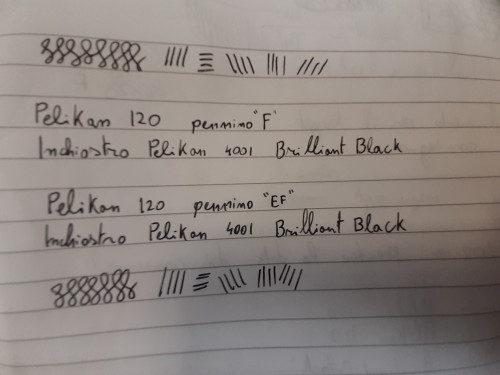 Pelikan 120 pennino "F"
Inchiostro Pelikan 4001 Brilliant Black
Pelikan 120 pennino "EF"
Inchiostro Pelikan 4001 Brilliant Black